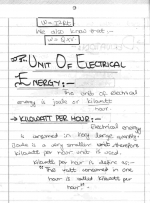 9
W = I²Rt
We also know that :-
W = Q×V
UNIT OF ELECTRICAL
ENERGY:-
The unit of electrical
energy is joule or kilowatt
hour.
→ KILOWATT PER HOUR:-
Electrical energy
is consumed in very large quantity.
Joule is a very smallest unit therefore
kilowatt per hour unit is used.
kilowatt per hour is define as:-
"The watt consumed in one
hour is called kilowatt per
hour".